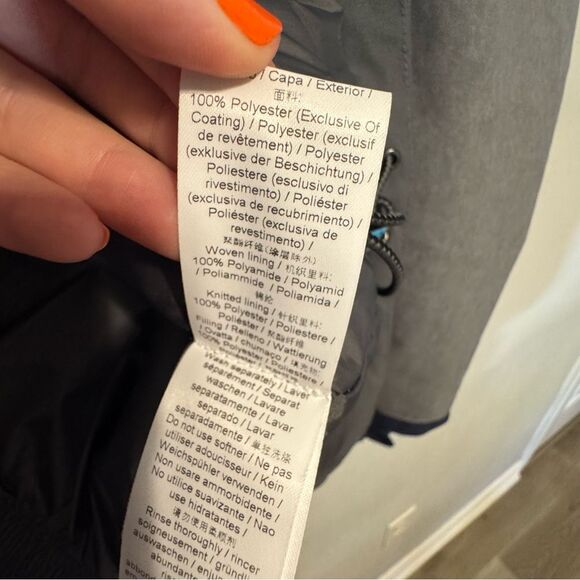 / Capa / Exterior /
面料:
100% Polyester (Exclusive Of
Coating) / Polyester (exclusif
de revêtement) / Polyester
(exklusive der Beschichtung) /
Poliestere (esclusivo di
rivestimento) / Poliéster
(exclusiva de recubrimiento) /
Poliéster (exclusiva de
revestimento) /
聚酯纤维(涂层除外)
Woven lining / 机织里料:
100% Polyamide / Polyamid
/ Poliammide / Poliamida /
锦纶
Knitted lining / 针织里料:
100% Polyester / Poliestere /
Poliéster / 聚酯纤维
Filling / Relleno / Wattierung
/ Ovatta / chumaço / 填充物:
100% Polyester / Poliestere /
Wash separately / Laver
séparément / Separat
waschen / Lavare
separatamente / Lavar
separado / Lavar
separadamente / 单独洗涤
Do not use softner / Ne pas
utiliser adoucisseur / Kein
Weichspühler verwenden /
Non usare ammorbidente /
No utilice suavizante / Nao
use hidratantes /
请勿使用柔顺剂
Rinse thoroughly / rincer
soigneusement / gründli
auswaschen / enjuag
abundante